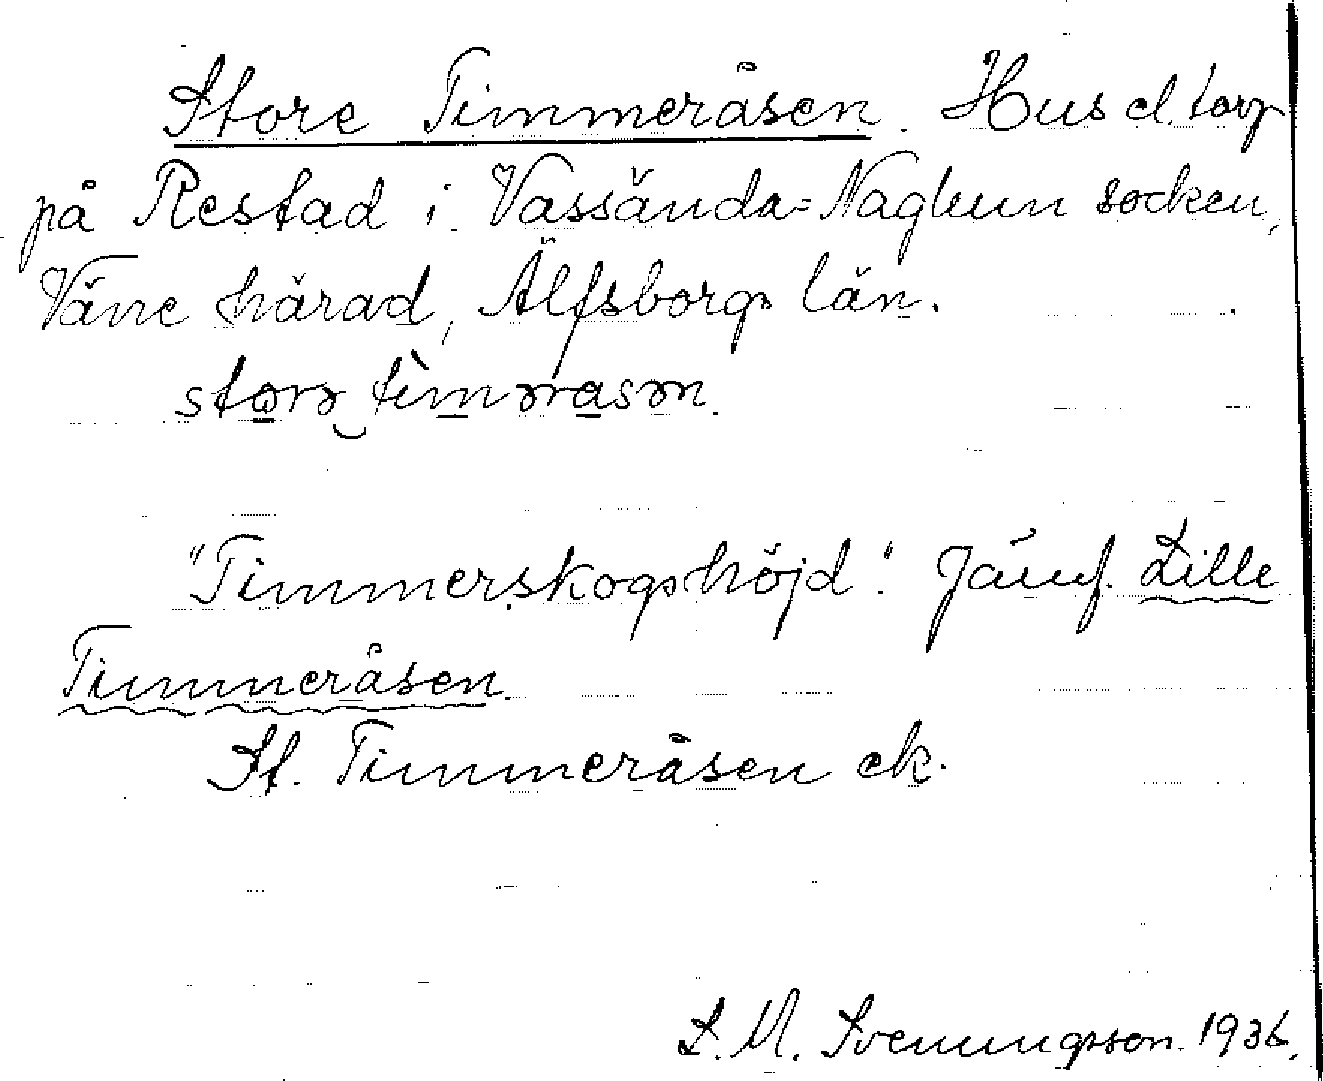 Store Timmeråsen. Hus el. torp
på Restad i Vassända-Naglum socken,
Väne härad, Älfsborgs län.
storə tìmərasən.
"Timmerskogshöjd". Jämf. Lille
Timmeråsen.
St. Timmeråsen ek.
L. M. Svenungsson. 1936.